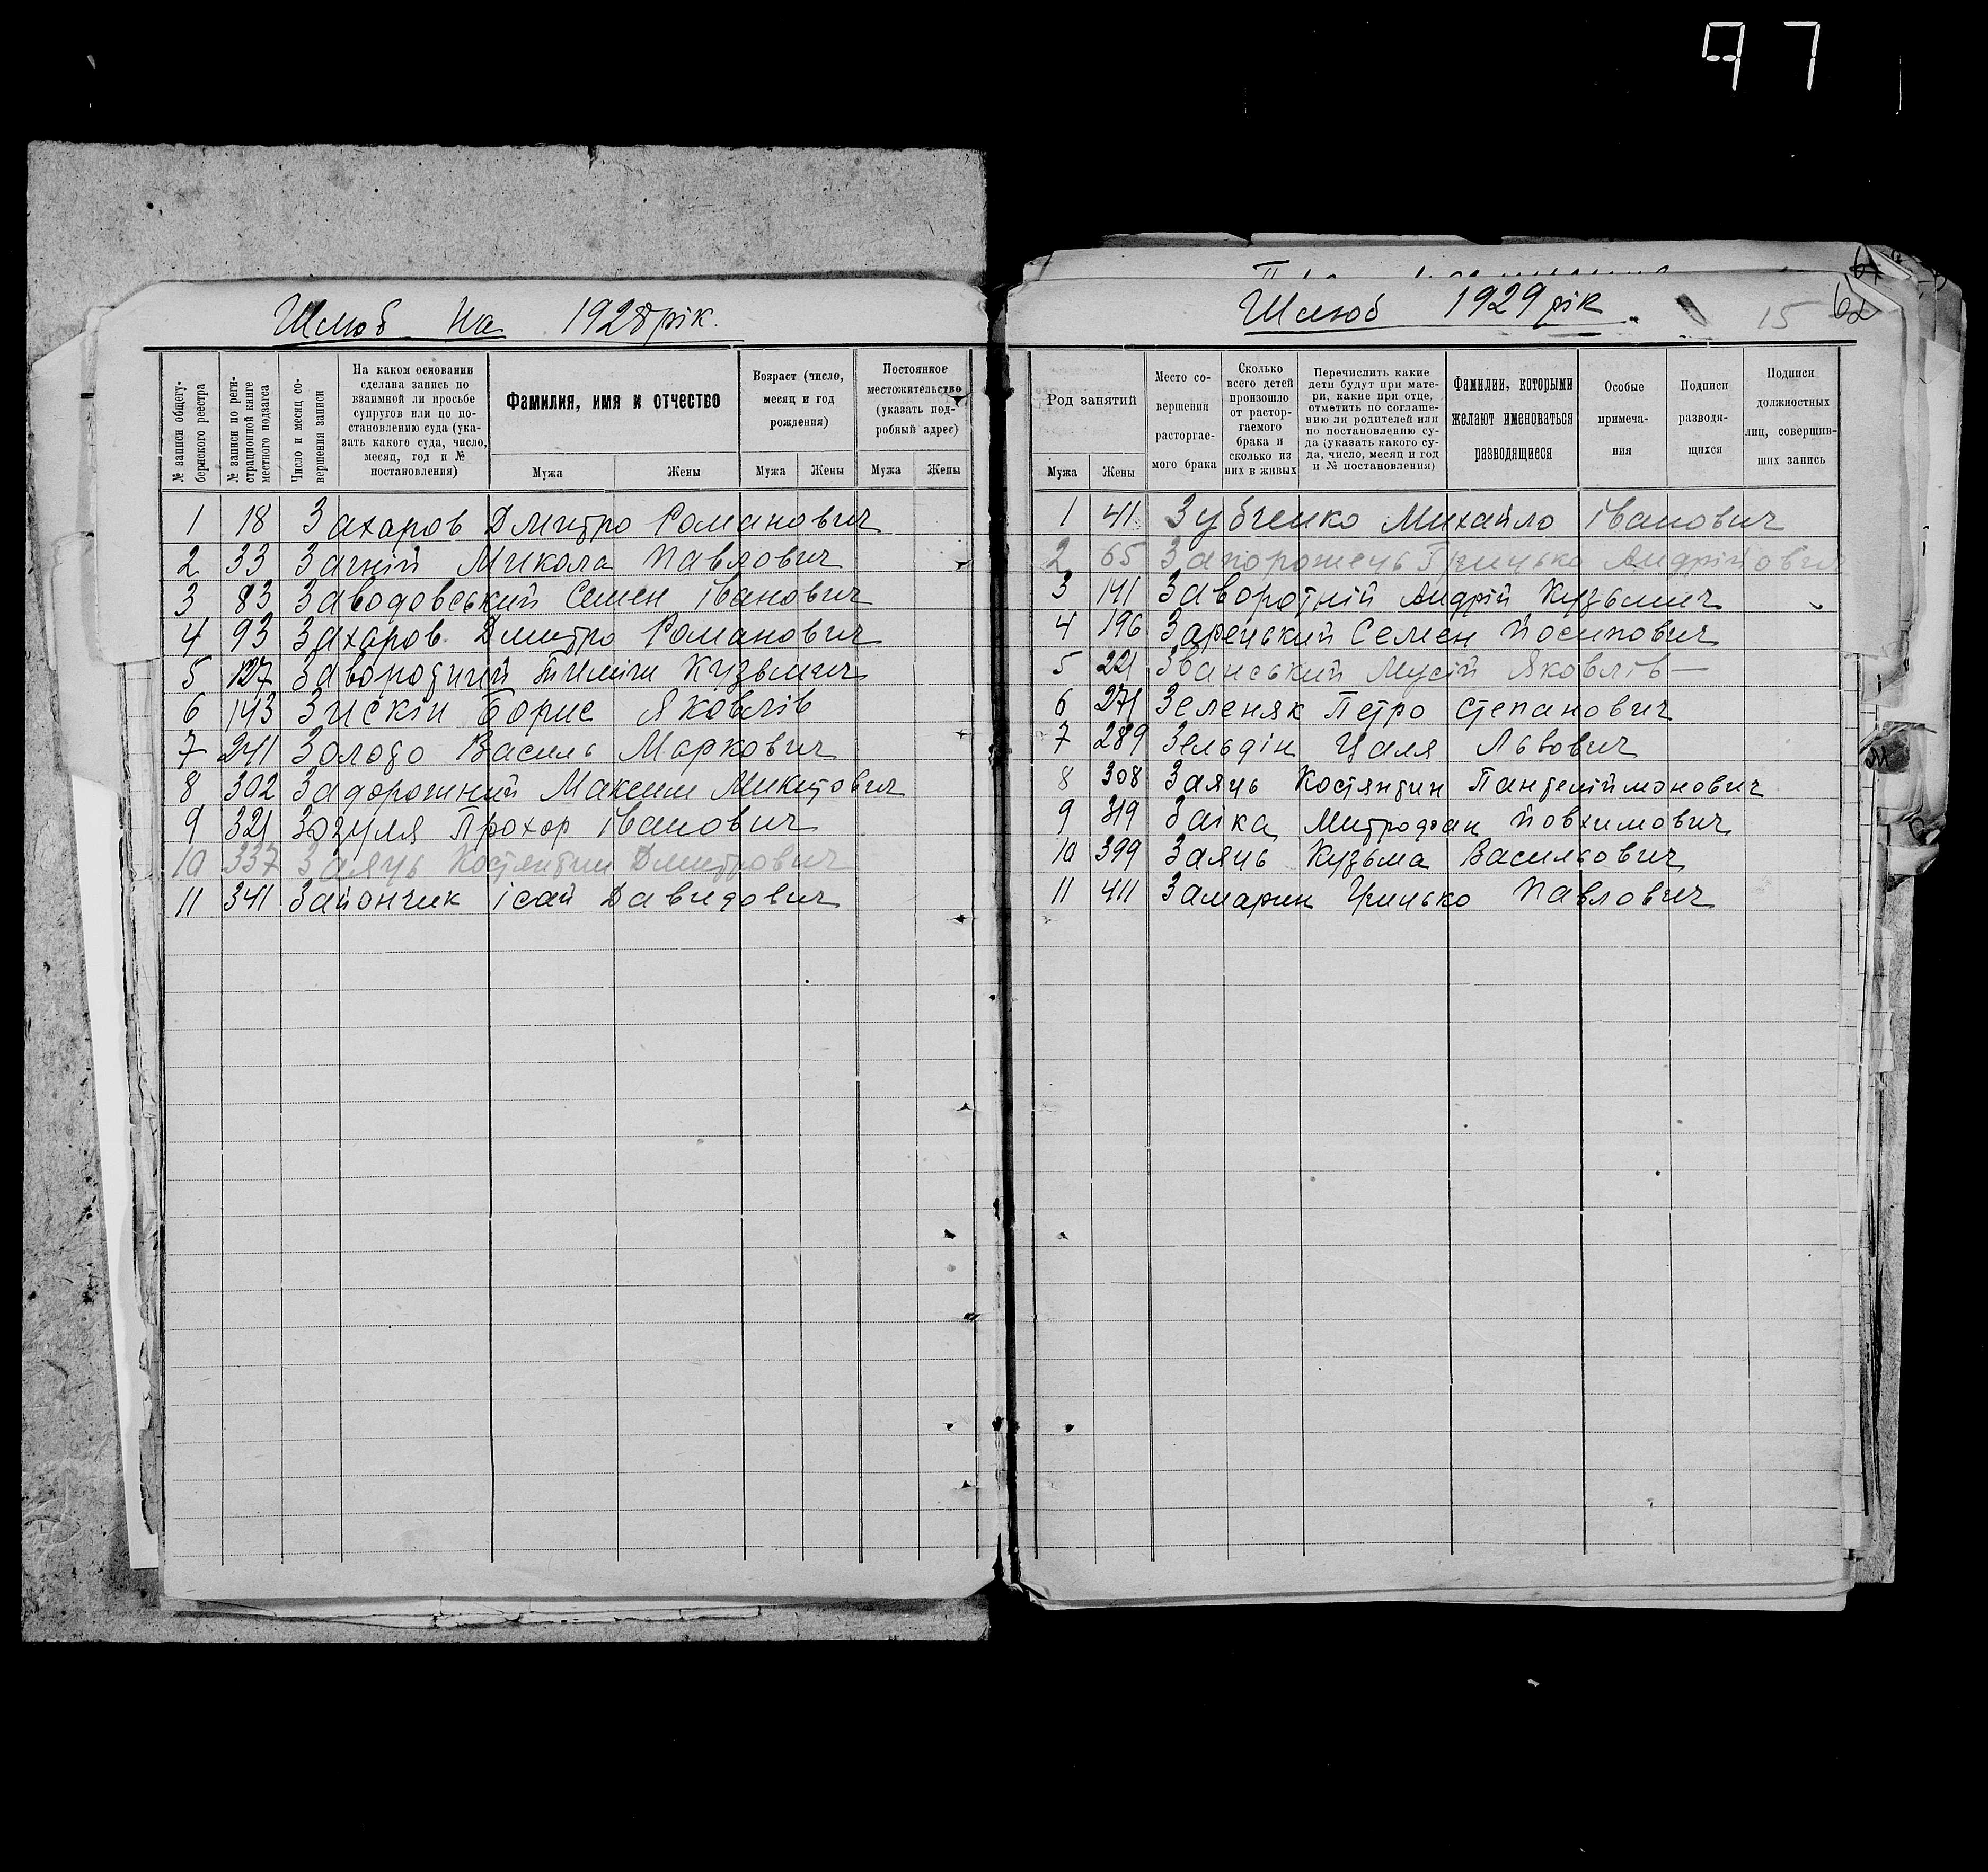 97
Шлюб на 1928 рік.
№ записи общегу-
бернского реестра
№ записи по реги-
страционной книге
местного подзагса
Число и месяц со-
вершения записи
На каком основании
сделана запись по
взаимной ли просьбе
супругов или по по-
становлению суда (ука-
зать какого суда, число,
месяц, год и №
постановления)
Фамилия, имя и отчество
Мужа Жены
Возраст (число,
месяц и год
рождения)
Мужа Жены
Постоянное
местожительство
(указать под-
робный адрес)
Мужа Жены
1 18 Захаров Дмитро Романович
2 33 Загній Микола Павлович
3 83 Заводовський Семен Іванович
4 93 Захаров Дмитро Романович
5 127 Кузьмич
6 143 Зискін Борис Яковлів
7 241 Золото Василь Маркович
8 302 Задорожний Максим Микитович
9 321 Зозуля Прохор Іванович
10 337 Заяць Костянтин Дмитрович
11 341 Зайончик Ісай Давидович
Шлюб 1929 рік
15
62
Род занятий
Мужа Жены
Место со-
вершения
расторгае-
мого брака
Сколько
всего детей
произошло
от растор-
гаемого
брака и
сколько из
них в живых
Перечислить какие
дети будут при мате-
ри, какие при отце,
отметить по соглаше-
нию ли родителей или
по постановлению су-
да (указать какого су-
да, число, месяц и год
и № постановления)
Фамилии, которыми
желают именоваться
разводящиеся
Особые
примеча-
ния
Подписи
разводя-
щихся
Подписи
должностных
лиц, совершив-
ших запись
1 41 Зубченко Михайло Іванович
2 65 Запорожець Грицько Андрійович
3 141 Заворотній Андрій Кузьмич
4 196 Зарецький Семен Йосипович
5 221 Званський Мусій Яковлів
6 271 Зеленяк Петро Степанович
7 289 Зельдін Цаля Львович
8 308 Заяць Костянтин Пантеліймонович
9 319 Заіка Митрофан Йовхимович
10 399 Заяць Кузьма Васильович
11 411 Замарин Грицько Павлович